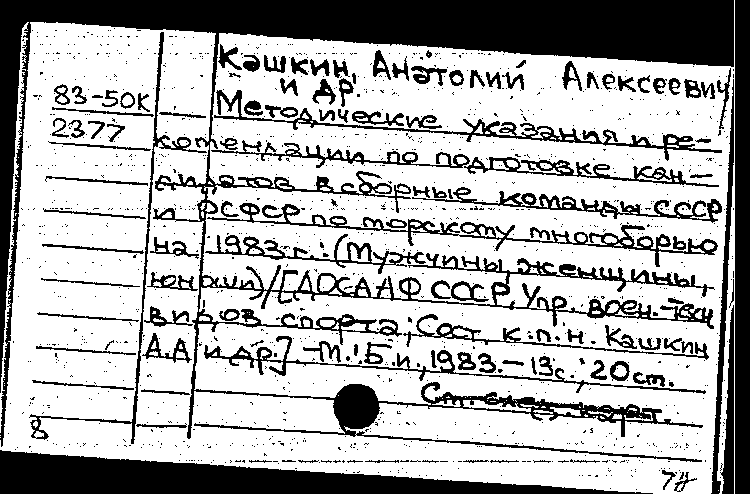 Кашкин, Анатолий Алексеевич
и др.
83-50К
2377
Методические указания и ре-
комендации по подготовке кан-
дидатов в сборные команды СССР
и РСФСР по морскому многоборью
на 1983 г.: (Мужчины, женщины,
юноши) / [ДОСААФ СССР, Упр. воен.-техн
видов спорта; Сост. к.п.н. Кашкин
А.А и др.] -М.: Б.и., 1983.- 13с.; 20 см.
См. след. карт.
8